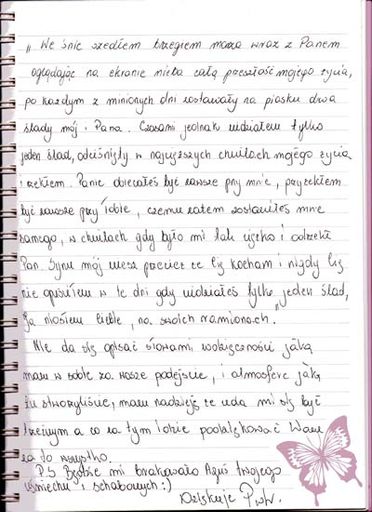 "We śnie szedłem brzegiem morza wraz z Panem
oglądając na ekranie nieba całą przeszłość mojego życia,
po każdym z minionych dni zostawały na piasku dwa
ślady mój i Pana. Czasami jednak widziałem tylko
jeden ślad, odciśnięty w najcięższych chwilach mojego życia
i rzekłem. Panie obiecałeś być zawsze przy mnie, przyrzekłem
być zawsze przy Tobie, czemu zatem zostawiłeś mnie
samego, w chwilach gdy było mi tak ciężko i odrzekł
Pan. Synu mój wiesz przecież że Cię kocham i nigdy Cię
nie opuściłem w te dni gdy widziałeś tylko jeden ślad,
Ja niosłem Ciebie, na swoich ramionach"
Nie da się opisać słowami wdzięczności jaką
mam w sobie za wasze podejście, i atmosferę jaką
tu stworzyliście, mam nadzieję że uda mi się być
trzeźwym a co za tym idzie podziękować Wam
za to wszystko.
P.S Będzie mi brakowało Aguś twojego
uśmiechu i schabowych :)
Dziękuję Piotr.